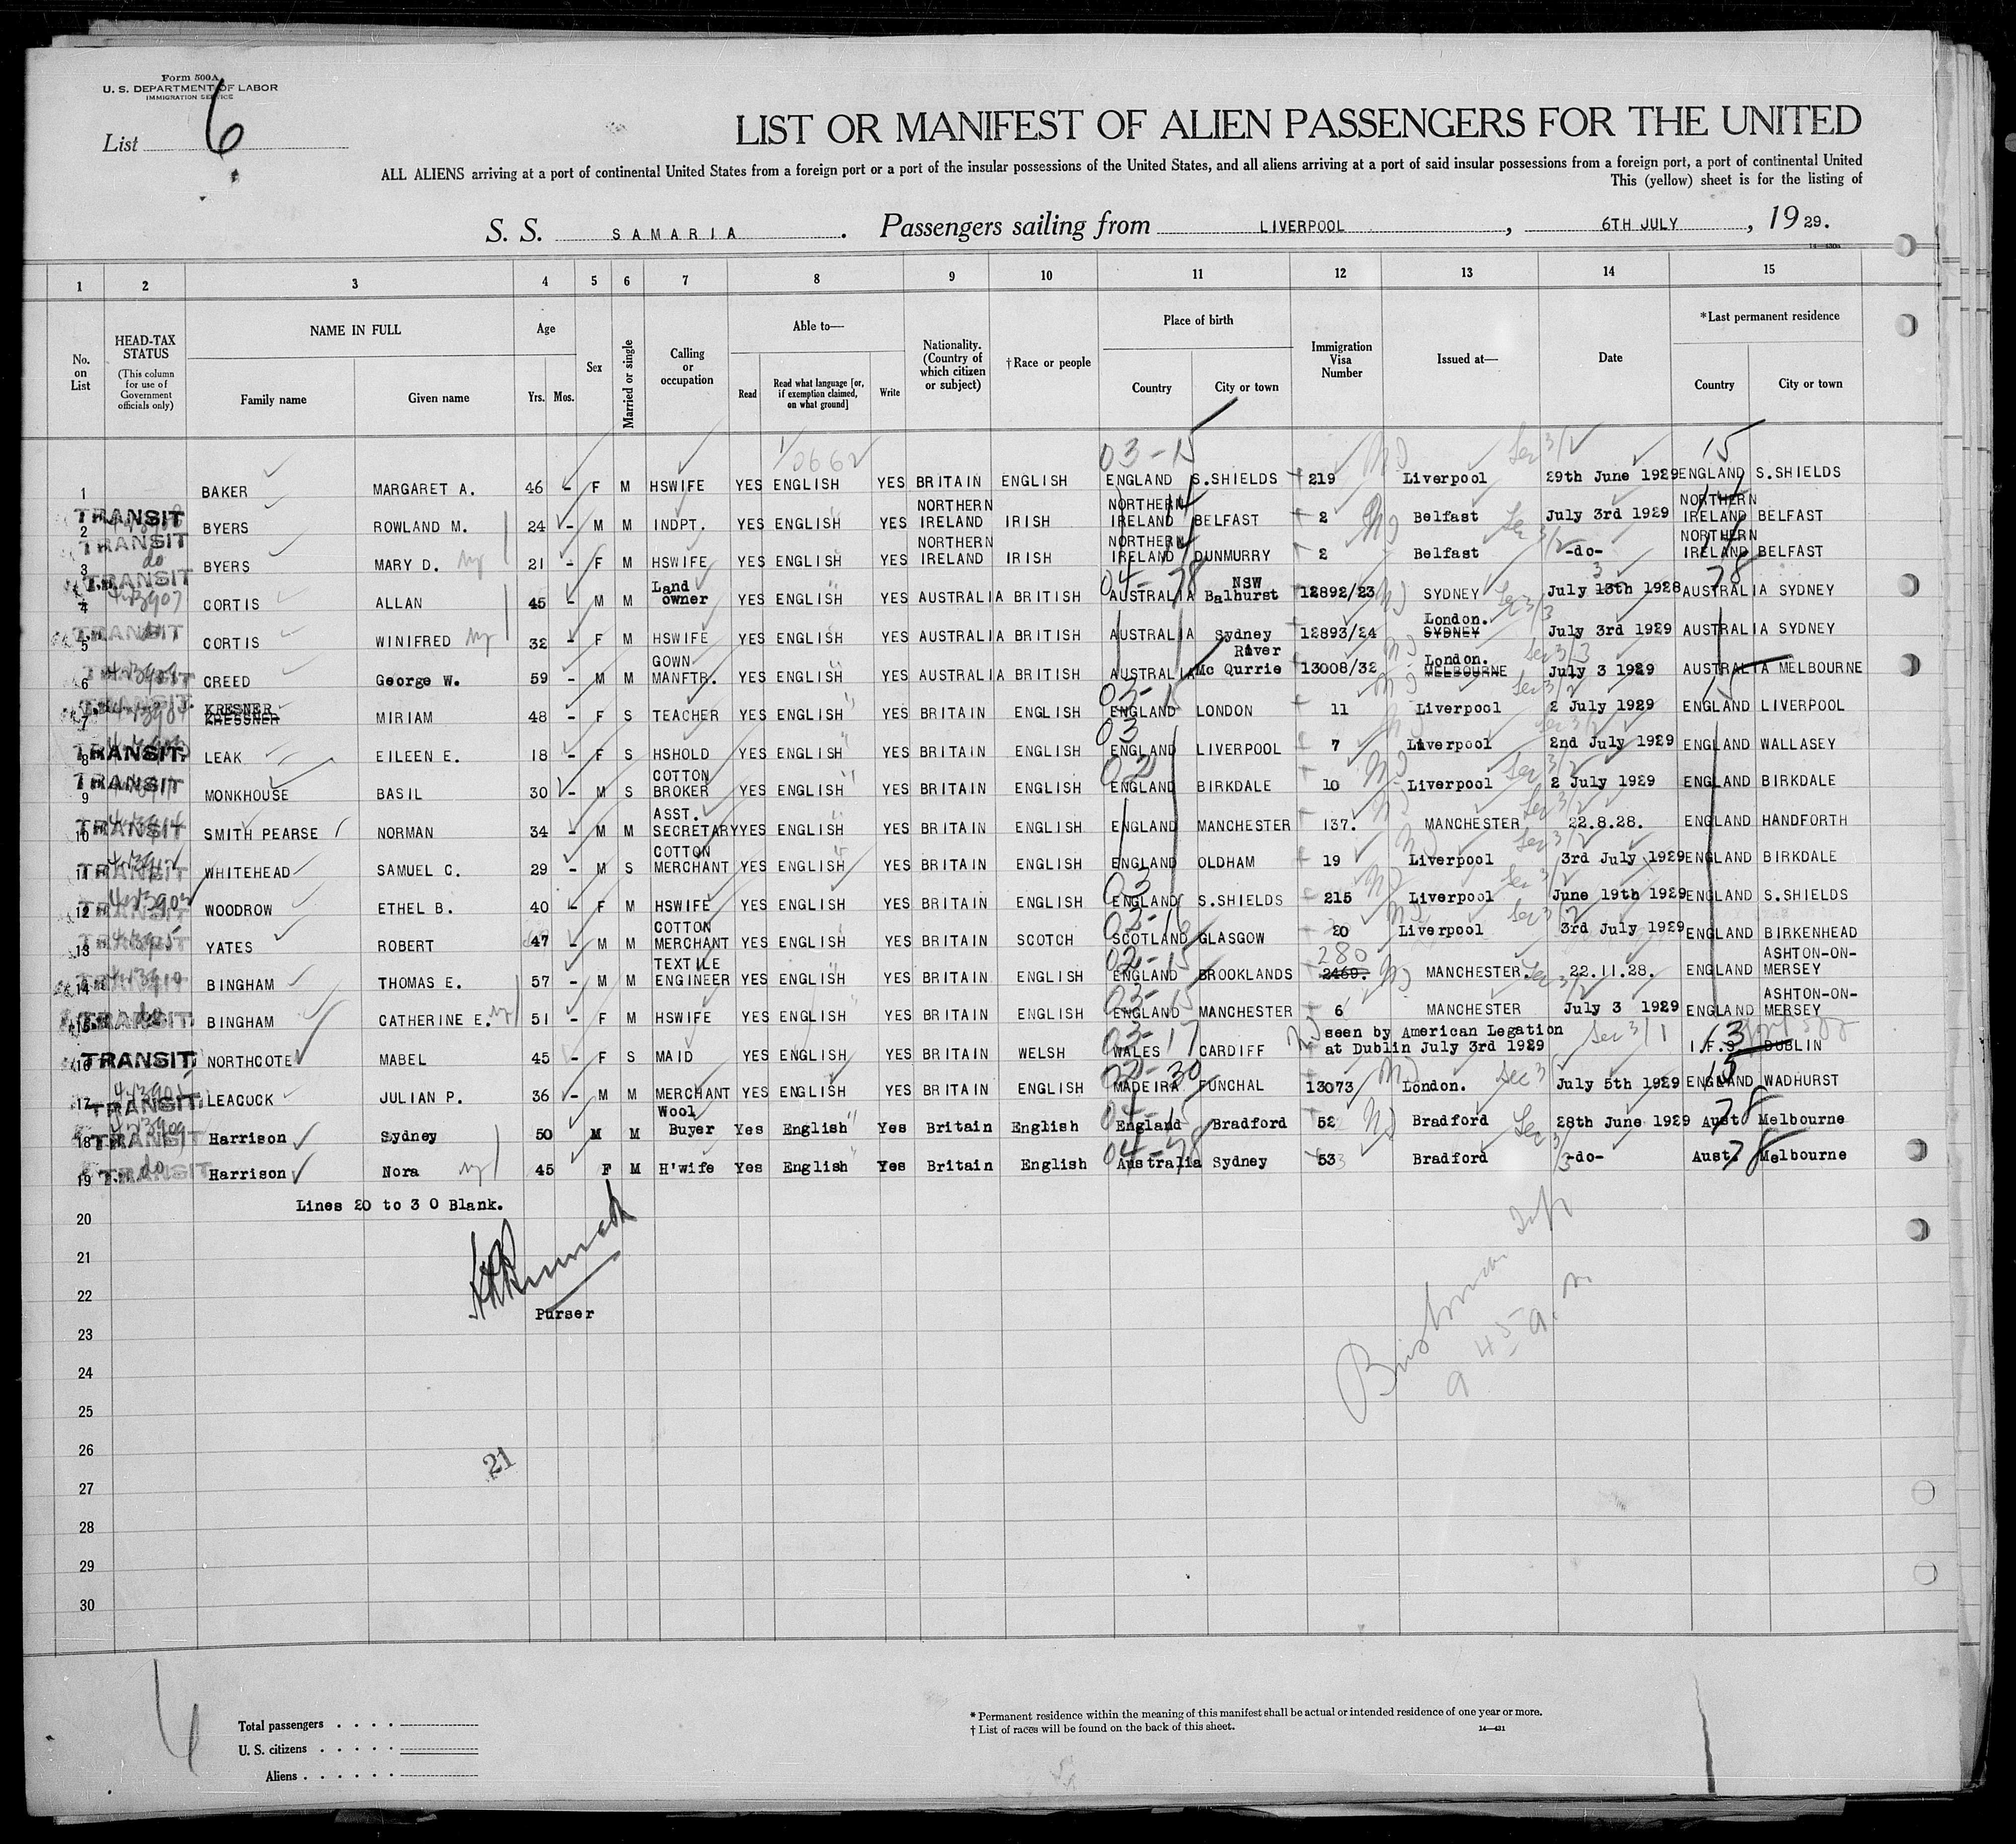 Form 500A
U. S. DEPARTMENT OF LABOR
IMMIGRATION SERVICE
List 6
LIST OR MANIFEST OF ALIEN PASSENGERS FOR THE UNITED
ALL ALIENS arriving at a port of continental United States from a foreign port or a port of the insular possessions of the United States, and all aliens arriving at a port of said insular possessions from a foreign port, a port of continental United
This (yellow) sheet is for the listing of
S. S. SAMARIA. Passengers sailing from LIVERPOOL, 6TH JULY, 1929.
1 2 3 4 5 6 7 8 9 10 11 12 13 14 15
No. on List
HEAD-TAX STATUS (This column for use of Government officials only)
NAME IN FULL
Family name Given name
Age
Yrs. Mos.
Sex
Married or single
Calling or occupation
Able to—
Read
Read what language [or, if exemption claimed, on what ground]
Write
Nationality. (Country of which citizen or subject)
†Race or people
Place of birth
Country City or town
Immigration Visa Number
Issued at—
Date
*Last permanent residence
Country City or town
03-15 15
1 BAKER MARGARET A. 46 - F M HSWIFE YES ENGLISH YES BRITAIN ENGLISH ENGLAND S.SHIELDS 219 Liverpool 29th June 1929 ENGLAND S.SHIELDS
TRANSIT 2 BYERS ROWLAND M. 24 - M M INDPT. YES ENGLISH YES NORTHERN IRELAND IRISH NORTHERN IRELAND BELFAST 2 Belfast July 3rd 1929 NORTHERN IRELAND BELFAST
TRANSIT do 3 BYERS MARY D. 21 - F M HSWIFE YES ENGLISH YES NORTHERN IRELAND IRISH NORTHERN IRELAND DUNMURRY 2 Belfast -do- NORTHERN IRELAND BELFAST
TRANSIT 4 CORTIS ALLAN 45 - M M Land owner YES ENGLISH YES AUSTRALIA BRITISH AUSTRALIA NSW Balhurst 12892/23 SYDNEY July 13th 3 1928 AUSTRALIA SYDNEY
TRANSIT 5 CORTIS WINIFRED 32 - F M HSWIFE YES ENGLISH YES AUSTRALIA BRITISH AUSTRALIA Sydney 12893/24 London. SYDNEY July 3rd 1929 AUSTRALIA SYDNEY
TRANSIT 6 CREED George W. 59 - M M GOWN MANFTR. YES ENGLISH YES AUSTRALIA BRITISH AUSTRALIA River Mc Qurrie 13008/32 London. MELBOURNE July 3 1929 AUSTRALIA MELBOURNE
TRANSIT 7 KRESNER KRESSNER MIRIAM 48 - F S TEACHER YES ENGLISH YES BRITAIN ENGLISH ENGLAND LONDON 11 Liverpool 2 July 1929 ENGLAND LIVERPOOL
TRANSIT. 8 LEAK EILEEN E. 18 - F S HSHOLD YES ENGLISH YES BRITAIN ENGLISH ENGLAND LIVERPOOL 7 Liverpool 2nd July 1929 ENGLAND WALLASEY
TRANSIT 9 MONKHOUSE BASIL 30 - M S COTTON BROKER YES ENGLISH YES BRITAIN ENGLISH ENGLAND BIRKDALE 10 Liverpool 2 July 1929 ENGLAND BIRKDALE
TRANSIT 10 SMITH PEARSE NORMAN 34 - M M ASST. SECRETARY YES ENGLISH YES BRITAIN ENGLISH ENGLAND MANCHESTER 137. MANCHESTER 22.8.28. ENGLAND HANDFORTH
TRANSIT 11 WHITEHEAD SAMUEL C. 29 - M S COTTON MERCHANT YES ENGLISH YES BRITAIN ENGLISH ENGLAND OLDHAM 19 Liverpool 3rd July 1929 ENGLAND BIRKDALE
TRANSIT 12 WOODROW ETHEL B. 40 - F M HSWIFE YES ENGLISH YES BRITAIN ENGLISH ENGLAND S.SHIELDS 215 Liverpool June 19th 1929 ENGLAND S.SHIELDS
TRANSIT 13 YATES ROBERT 47 - M M COTTON MERCHANT YES ENGLISH YES BRITAIN SCOTCH SCOTLAND GLASGOW 20 Liverpool 3rd July 1929 ENGLAND BIRKENHEAD
TRANSIT 14 BINGHAM THOMAS E. 57 - M M TEXTILE ENGINEER YES ENGLISH YES BRITAIN ENGLISH ENGLAND BROOKLANDS 280 2469. MANCHESTER. 22.11.28. ENGLAND ASHTON-ON-MERSEY
TRANSIT. do 15 BINGHAM CATHERINE E. 51 - F M HSWIFE YES ENGLISH YES BRITAIN ENGLISH ENGLAND MANCHESTER 6 MANCHESTER July 3 1929 ENGLAND ASHTON-ON-MERSEY
TRANSIT. 16 NORTHCOTE MABEL 45 - F S MAID YES ENGLISH YES BRITAIN WELSH WALES CARDIFF seen by American Legation at Dublin July 3rd 1929 I.F.S. DUBLIN
TRANSIT. 17 LEACOCK JULIAN P. 36 - M M MERCHANT YES ENGLISH YES BRITAIN ENGLISH MADEIRA FUNCHAL 13073/ London. July 5th 1929 ENGLAND WADHURST
TRANSIT 18 Harrison Sydney 50 M M Wool Buyer Yes English Yes Britain English England Bradford 52 Bradford 28th June 1929 Aust. Melbourne
TRANSIT do 19 Harrison Nora 45 F M H'wife Yes English Yes Britain English Australia Sydney 53 Bradford -do- Aust. Melbourne
Lines 20 to 3 0 Blank.
20
21
22
Purser
23
24
25
26
21
27
28
29
30
Total passengers
U. S. citizens
Aliens
* Permanent residence within the meaning of this manifest shall be actual or intended residence of one year or more.
† List of races will be found on the back of this sheet.
14—431